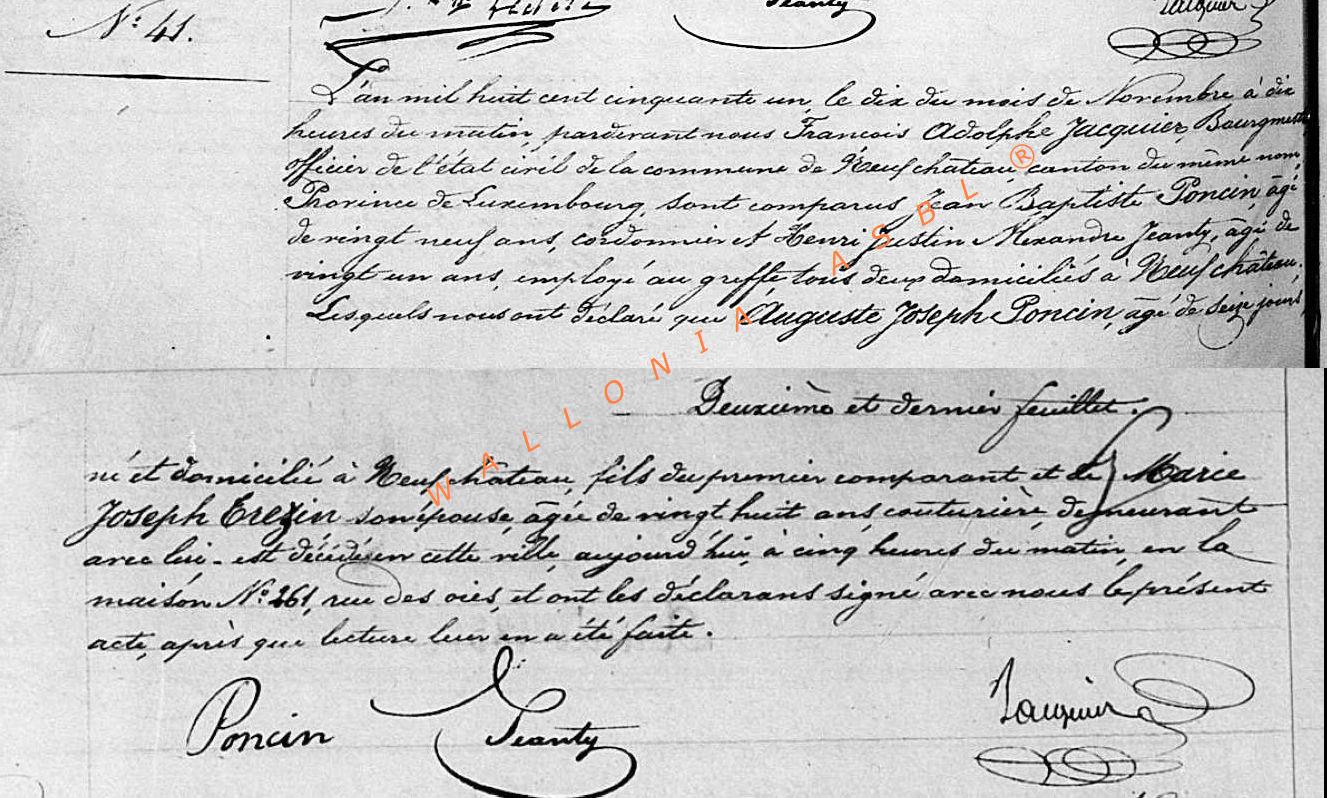 Jeanty Jacquier
N° 41.
L'an mil huit cent cinquante un, le dix du mois de Novembre à dix
heures du matin, pardevant nous Francois Adolphe Jacquier, Bourgmestre
officier de l'état civil de la commune de Neufchâteau canton du même nom
Province de Luxembourg, sont comparus Jean Baptiste Poncin, âgé
de vingt neuf ans, cordonnier et Henri Justin Alexandre Jeanty, âgé de
vingt un ans, employé au greffe, tous deux domiciliés à Neufchâteau.
Lesquels nous ont déclaré que Auguste Joseph Poncin, âgé de seize jours,
WALLONIA ASBL ®
Deuxième et dernier feuillet.
né et domicilié à Neufchâteau, fils du premier comparant et de Marie
Joseph Erezin son épouse, âgée de vingt huit ans, couturière, demeurant
avec lui - est décédé en cette ville, aujourd'hui, à cinq heures du matin, en la
maison N° 261, rue des oies, et ont les déclarans signé avec nous le présent
acte, après que lecture leur en a été faite.
Poncin Jeanty Jacquier